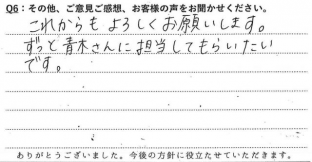 Q6：その他、ご意見ご感想、お客様の声をお聞かせください。
これからも よろしくお願いします。
ずっと青木さんに担当してもらいたい
です。
ありがとうございました。今後の方針に役立たせていただきます。